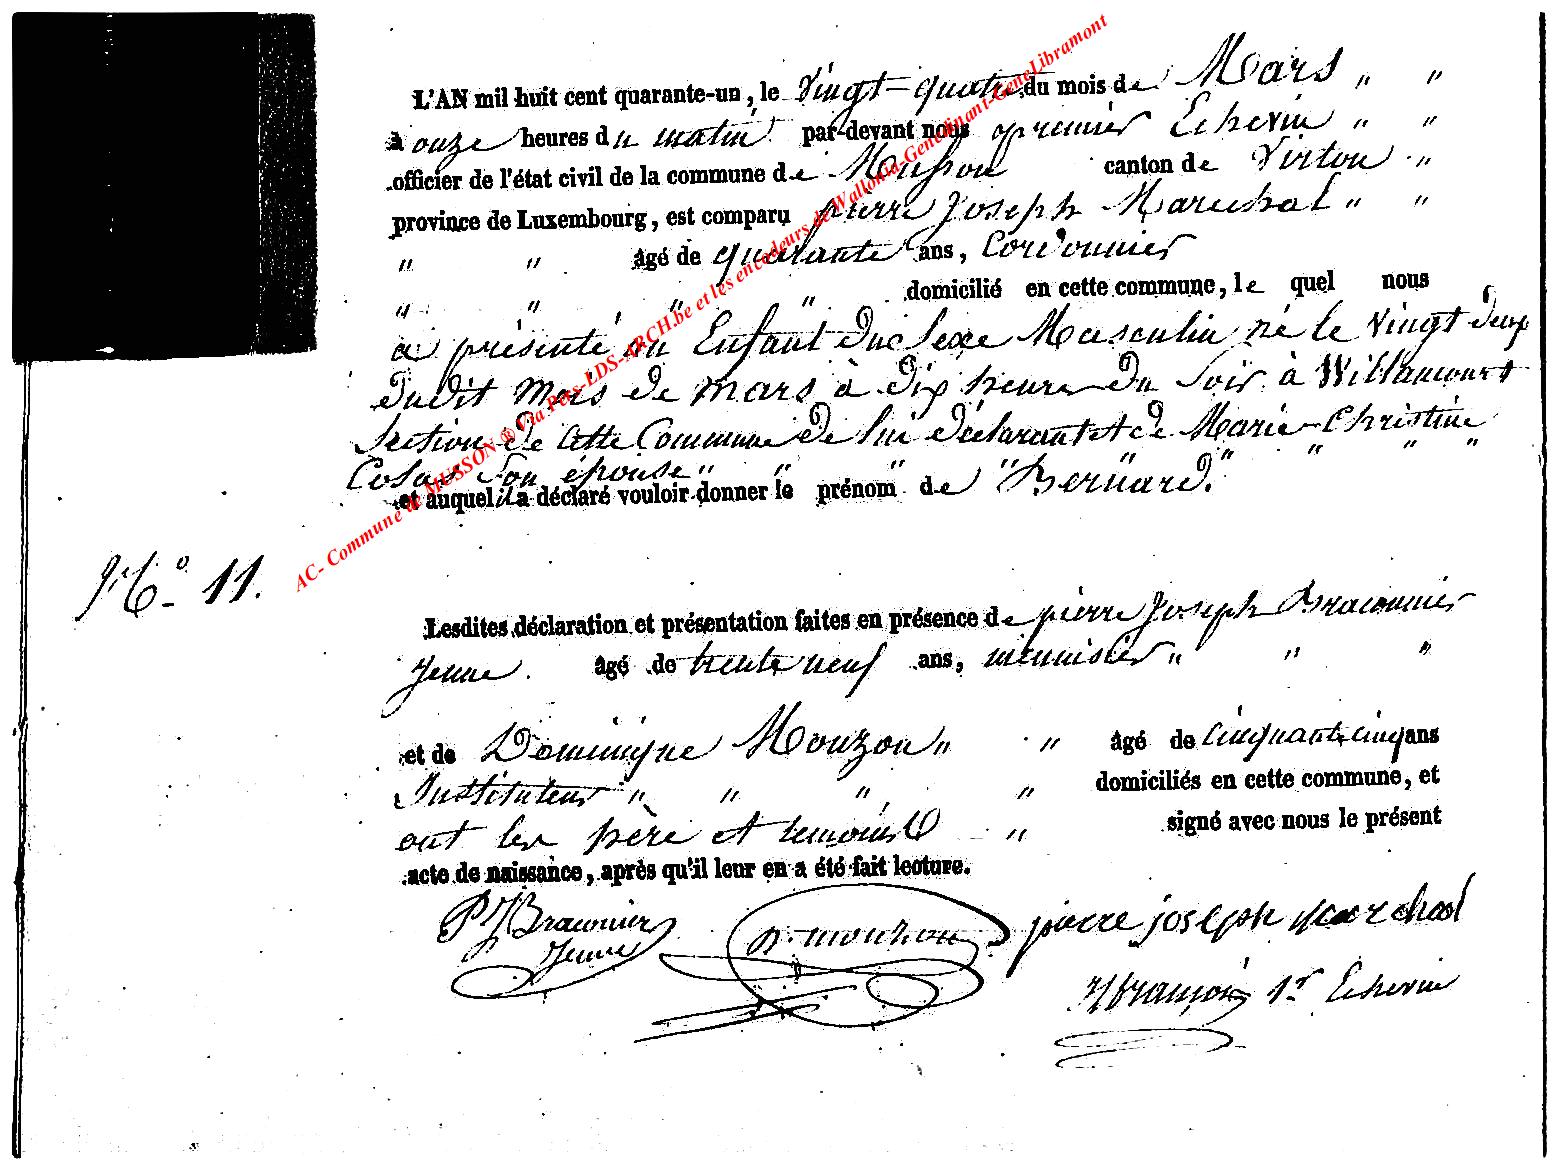 L'AN mil huit cent quarante-un, le Vingt-quatre du mois de Mars " "
à onze heures du matin par-devant nous premier Echevin " "
officier de l'état civil de la commune de Musson canton de Virton "
province de Luxembourg, est comparu pierre Joseph Marechal " "
" " âgé de quarante ans, Cordonnier
" " " " domicilié en cette commune, le quel nous
a présenté un Enfant du Sexe Masculin né le Vingt deux
dudit mois de mars à dix heures du Soir à Willancourt
Section de cette Commune de lui déclarant et de Marie-Christine
son épouse " " " " " "
et auquel il a déclaré vouloir donner le prénom de "Bernard."
N° 11.
Lesdites déclaration et présentation faites en présence de pierre Joseph Braconnier
Jeune. âgé de trente neuf ans, menuisier " " "
et de Dominique Mouzon " " âgé de cinquante cinq ans
Instituteur " " " " domiciliés en cette commune, et
ont les père et temoins " signé avec nous le présent
acte de naissance, après qu'il leur en a été fait lecture.
PJ Braconnier
Jeune
D. mouzon
pierre joseph marechal
1er Echevin
AC- Commune de MUSSON ® Via Pers-LDS-ARCH.be et les encodeurs de Wallonia-GeneDinant-GeneLibramont